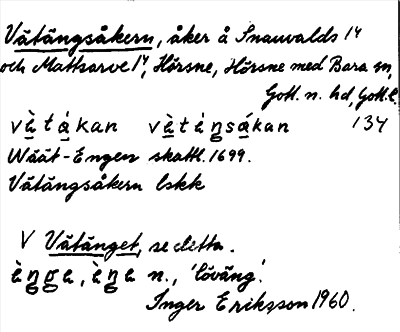 Våtängsåkern, åker å Snauvalds 1⁴
och Mattsarve 1⁴, Hörsne, Hörsne med Bara sn,
Gotl. n. hd, Gotl. l.
134
Wåät-Engen skattl. 1699.
Våtängsåkern lskk
V Våtänget, se detta.
n., 'löväng'.
Inger Eriksson 1960.